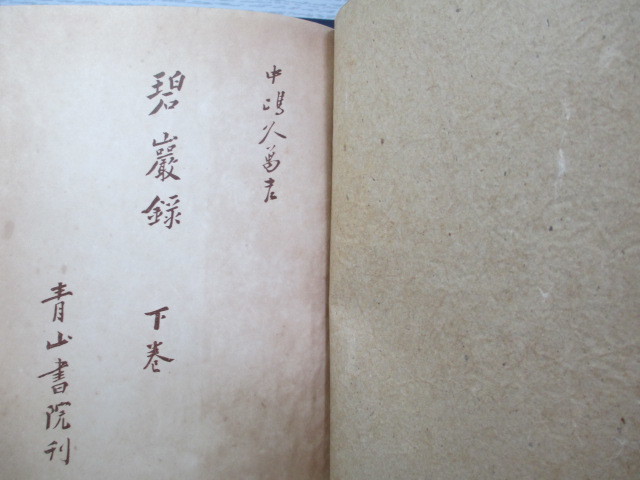 中嶋久萬吉
碧巖錄 下卷
青山書院刊